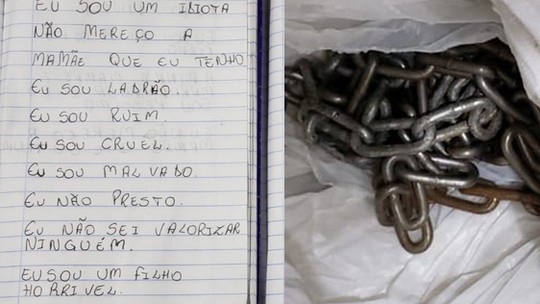 EU SOU UM IDIOTA
NÃO MEREÇO A
MAMÃE QUE EU TENHO
EU SOU LADRÃO.
EU SOU RUIM
EU SOU CRUEL.
EU SOU MALVADO.
EU NÃO PRESTO.
EU NÃO SEI VALORIZAR
NINGUÉM.
EU SOU UM FILHO
HORRIVEL.